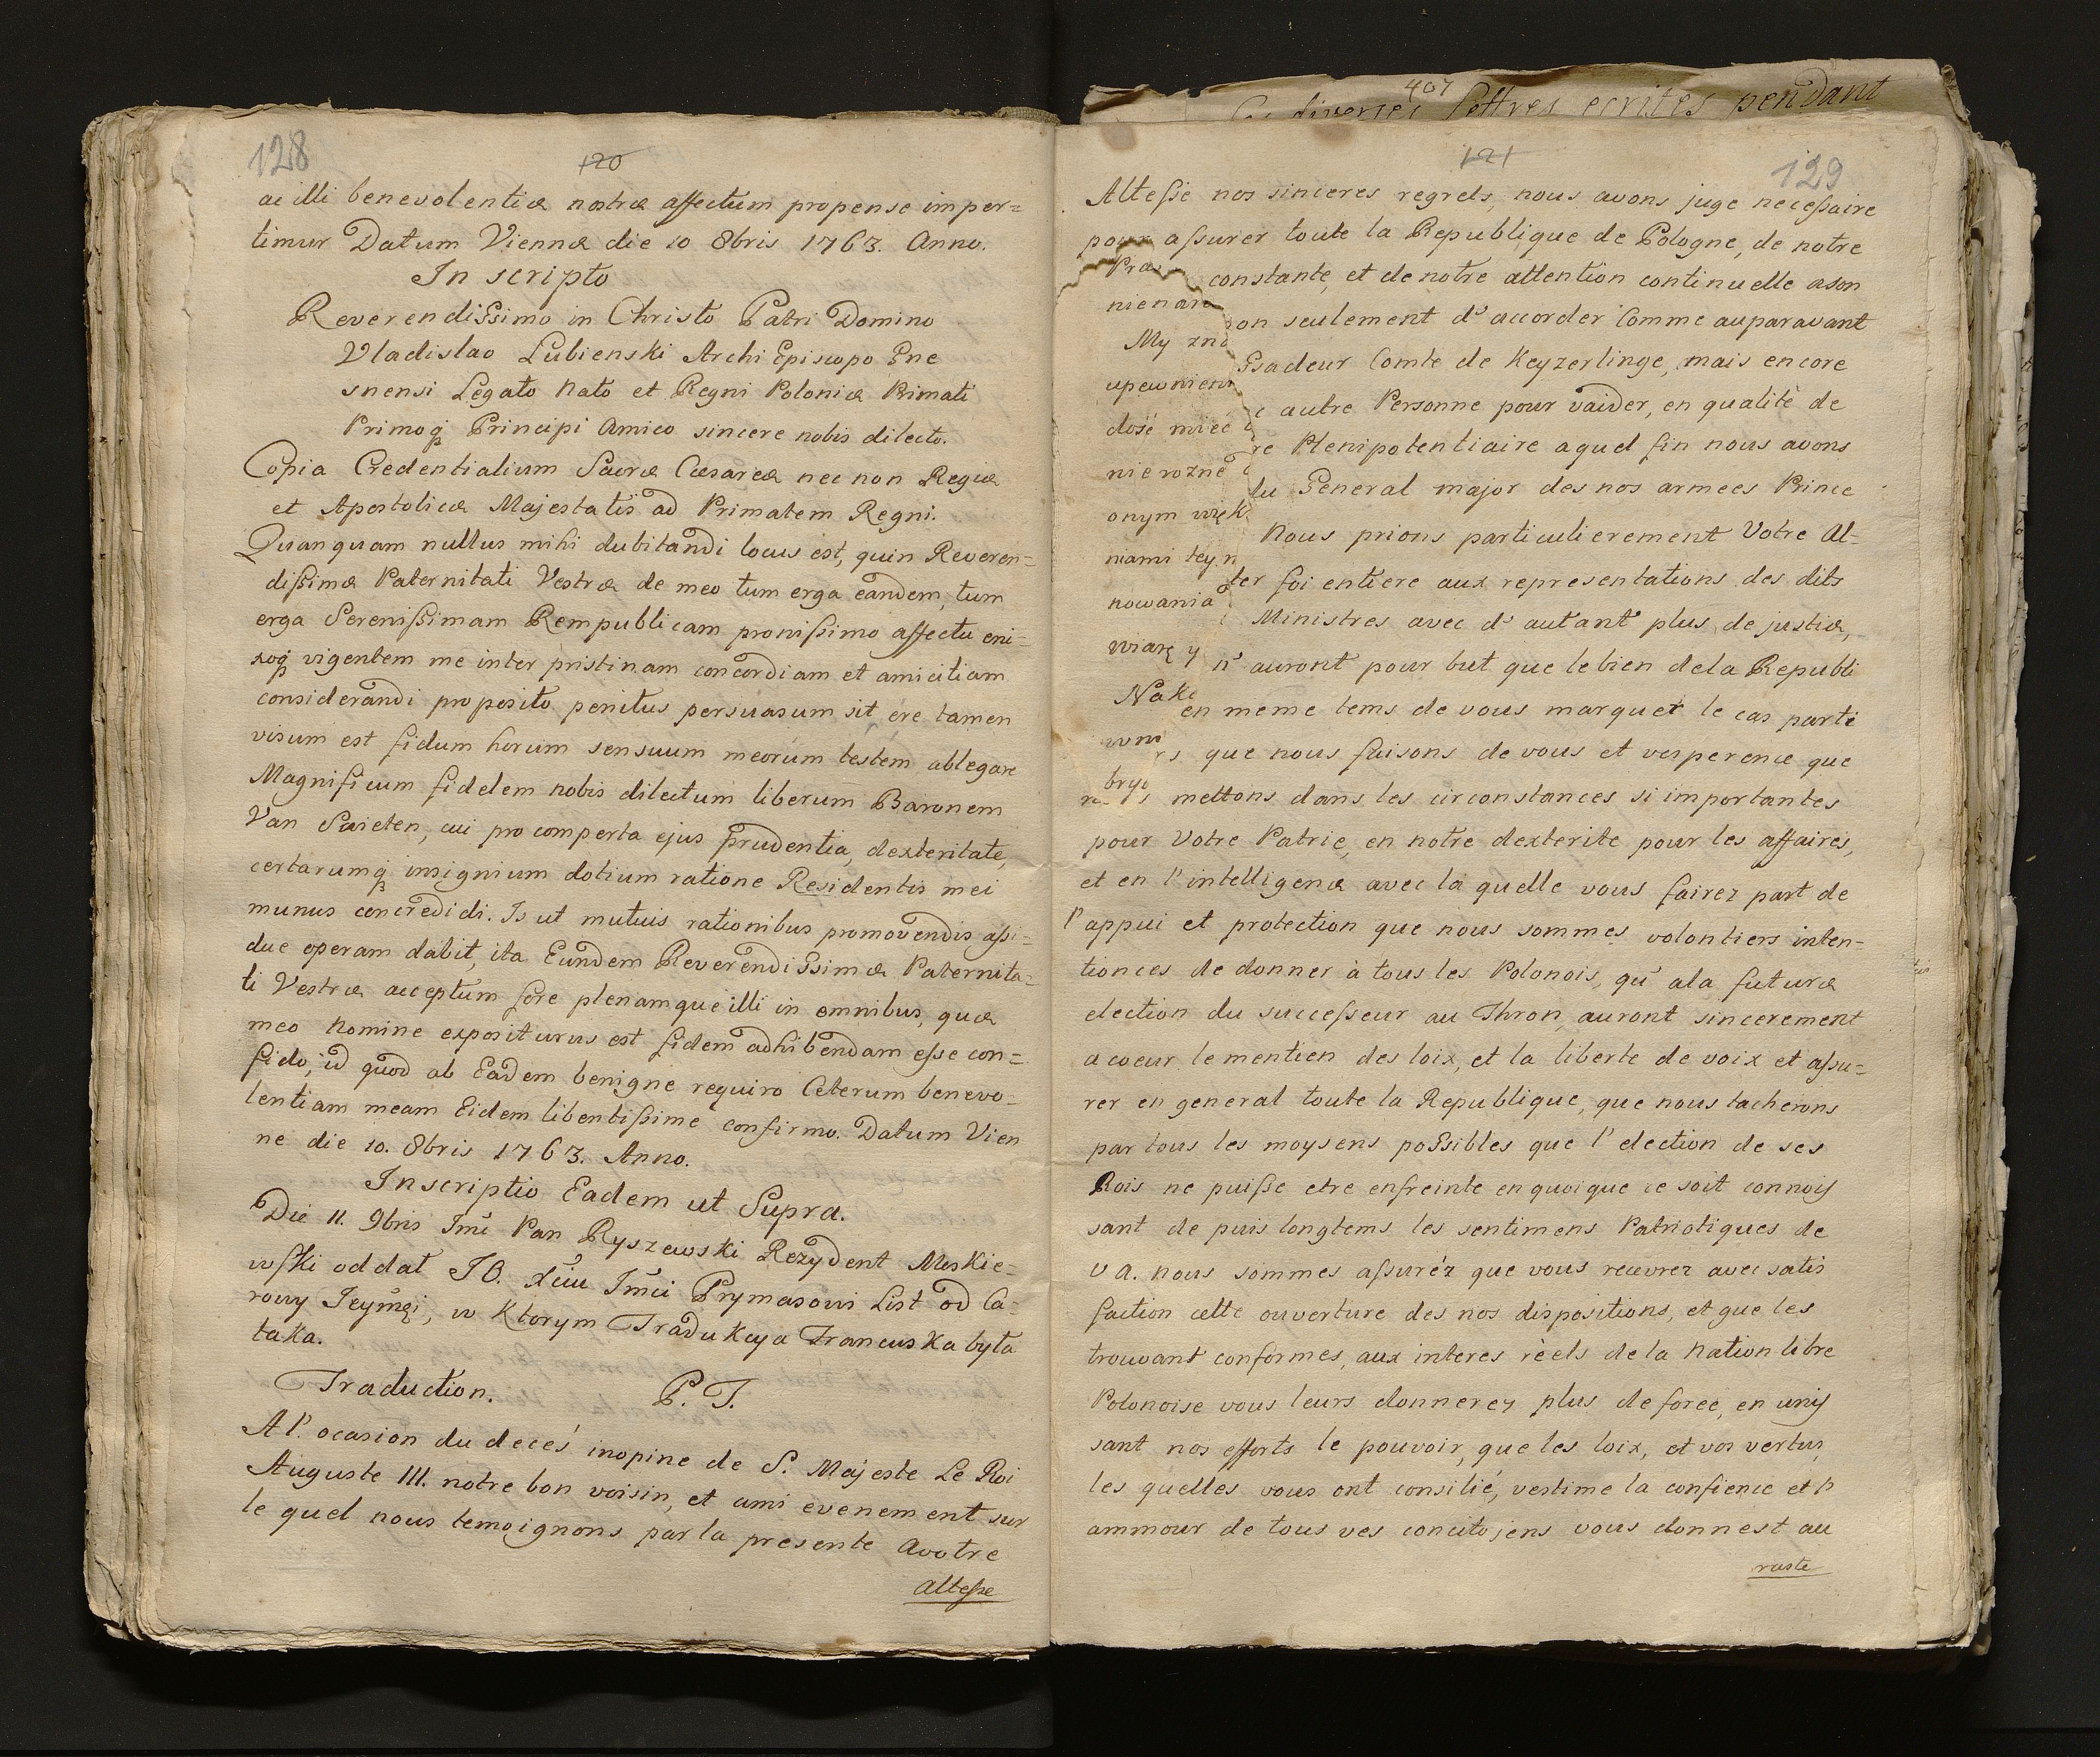 128
120
ac illi benevolentiæ nostræ affectum propense imper=
timur Datum Viennæ die 10 8bris 1763. Anno.
In scripto
Reverendissimo in Christo Patri Domino
Vladislao Lubienski Archi Episcopo Gne
snensi Legato Nato et Regni Poloniæ Primati
Primoq Principi Amico sincere nobis dilecto.
Copia Credentialium Sacræ Cæsareæ nec non Regiæ
et Apostolicæ Majestatis ad Primatem Regni.
Quanquam nullus mihi dubitandi locus est, quin Reveren=
dissimæ Paternitati Vestræ de meo tum erga eandem, tum
erga Serenissimam Rempublicam pronissimo affectu eni=
xoq vigentem me inter pristinam concordiam et amicitiam
considerandi proposito penitus persuasum sit, ere tamen
visum est fidum horum sensuum meorum testem ablegare
Magnificum fidelem nobis dilectum liberum Baronem
Van Swieten, cui pro comperta ejus prudentia, dexteritate,
certarumq insignium dotium ratione Residentis mei
munus concredidi. Is ut mutuis rationibus promovendis assi=
due operam dabit, ita Eundem Reverendissimæ Paternita=
ti Vestræ acceptum fore plenamque illi in omnibus, quæ
meo Nomine expositurus est fidem adhibendam esse con=
fido, id quod ab Eadem benigne requiro Ceterum benevo=
lentiam meam Eidem libentissime confirmo. Datum Vien
ne die 10. 8bris 1763. Anno.
Inscriptio Eadem ut Supra.
Die 11. 9bris Jmć Pan Ryszewski Rezydent Moskie=
wski oddał J O. Xciu Jmci Prymasowi List od Ca=
rowy Jeymći, w Ktorym Tradukcya Francuska była
taka.
Traduction. P. T.
A l'. ocasion du decés inopine de S. Majeste Le Roi
Auguste III. notre bon voisin, et ami evenement sur
le quel nous temoignons par la presente Avotre
altesse
407
diverses Lettres ecrites pendant
121
129
Altesse nos sinceres regrets, nous avons juge necessaire
pour assurer toute la Republique de Pologne, de notre
Pra constante, et de notre attention continuelle ason
nienar on seulement d' accorder Comme auparavant
My zna ssadeur Comte de Keyzerlinge, mais encore
upewnien e autre Personne pour vaider, en qualitè de
dość mieć re Plenipotentiaire aquel fin nous avons
nie rozne du General major des nos armees Prince
onym więk Nous prions particulierement Votre Al-
niami tey n ter foi entiere aux representations des dits
nowania Ministres avec d' autant plus de justiæ,
wiarę y n' auront pour but que le bien dela Republi
Nake en meme tems de vous marquer le cas parti
wni rs que nous faisons de vous et vesperence que
bryc mettons dans les circonstances si importantes
pour Votre Patrie, en notre dexterite pour les affaires,
et en l'intelligenæ avec la quelle vous fairez part de
l'appui et protection que nous sommes volontiers inten=
tionees de donner à tous les Polonois, qu' ala futuræ
election du successeur au Thron auront sincerement
a coeur le mentien des loix, et la liberte de voix et assu=
rer en general toute la Republique, que nous tacherons
par tous les moysens possibles que l' election de ses
Rois ne puisse etre enfreinte en quoique ce soit connois
sant de puis longtems les sentimens Patriotiques de
V A. nous sommes assuréz que vous recevrez avec satis
faction cette ouverture des nos dispositions, et que les
trouvant conformes, aux interes rèels de la Nation libre
Polonoise vous leurs donnerez plus de force, en unis
sant nos efforts le pouvoir, que les loix, et vos vertus,
les quelles vous ont consilié, vestime la confience et l'
ammour de tous ves concitojens vous donnest au
raste